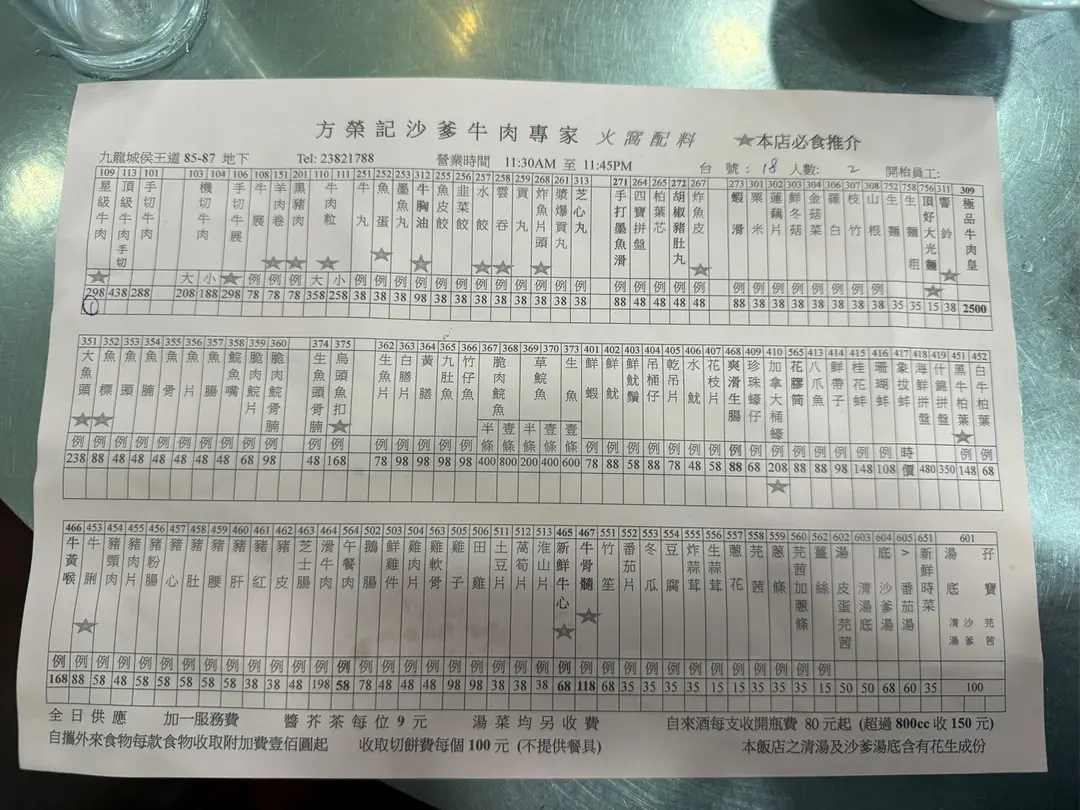 方榮記沙爹牛肉專家 火窩配料 ★本店必食推介
九龍城侯王道 85-87 地下 Tel: 23821788 營業時間 11:30AM 至 11:45PM 台號: 18 人數: 2 開枱員工:
109 113 101 103 104 106 108 151 201 110 111 251 252 253 312 255 256 257 258 259 268 261 313 271 264 265 272 267 273 301 302 303 304 306 307 308 756 311 309
星級牛肉
頂級牛肉手切
手切牛肉
機切牛肉
手切牛展
牛展
羊肉卷
黑豬肉
牛肉粒
牛丸
魚蛋
墨魚丸
牛胸油
魚皮餃
韮菜餃
水餃
雲吞
貢丸
炸魚片頭
漿爆貢丸
芝心丸
手打墨魚滑
四寶拼盤
柏葉芯
胡椒豬肚丸
炸魚皮
蝦滑
粟米
蓮藕片
鮮冬菇
金菇菜
蘿白
枝竹
山根
生麵
生麵粗
頂好大光麵
響鈴
極品牛肉皇
大 小 例 例 例 例 大 小 例 例 例 例 例 例 例 例 例 例 例 例 例 例 例 例 例 例 例 例 例 例 例 例 例
298 438 288 208 188 298 78 78 78 358 258 38 38 38 98 38 38 38 38 38 38 38 38 88 48 48 48 48 88 38 38 38 38 38 38 38 35 35 15 38 2500
351 352 353 354 355 356 357 358 359 360 374 375 362 363 364 365 366 367 368 369 370 373 401 402 403 404 405 406 407 468 409 410 565 413 414 415 416 417 418 419 451 452
大魚頭
魚標
魚頭
魚腩
魚骨
魚片
魚腸
鯇魚嘴
脆肉鯇片
脆肉鯇骨腩
生魚頭骨腩
烏頭魚扣
生魚片
白膳片
黃膳
九肚魚
竹仔魚
脆肉鯇魚
草鯇魚
生魚
鮮蝦
鮮魷
鮮魷鬚
吊桶仔
乾吊片
水魷
花枝片
爽滑生腸
珍珠蠔仔
加拿大桶蠔
花膠筒
八爪魚
鮮帶子
桂花蚌
珊瑚蚌
象拔蚌
海鮮拼盤
什錦拼盤
黑牛柏葉
白牛柏葉
半條 壹條 半條 壹條 壹條
例 例 例 例 例 例 例 例 例 例 例 例 例 例 例 例 例 例 例 例 例 例 例 例 例 例 例 例 例 例 例 例 時價 例 例
238 88 48 48 48 48 48 48 68 98 48 168 78 98 98 98 98 400 800 200 400 600 78 88 58 88 78 48 58 88 68 208 88 88 98 148 108 480 350 148 68
466 453 454 455 456 457 458 459 460 461 462 463 464 564 502 503 504 563 505 506 511 512 513 465 467 551 552 553 554 555 556 557 558 559 560 562 602 603 604 605 651 601
牛黃喉
牛脷
豬頸肉
豬肉片
豬粉腸
豬心
豬肚
豬腰
豬肝
豬紅
豬皮
芝士腸
滑牛肉
午餐肉
鵝腸
鮮雞件
雞肉片
雞軟骨
雞子
田雞
土豆片
萵筍片
淮山片
新鮮牛心
牛骨髓
竹笙
番茄片
冬瓜
豆腐
炸蒜茸
生蒜茸
蔥花
芫茜
蔥條
芫茜加蔥條
薑絲
湯底>
皮蛋芫茜湯
清湯底
沙爹湯
番茄湯
新鮮時菜
湯底孖寶
清湯 沙爹 芫茜
例 例 例 例 例 例 例 例 例 例 例 例 例 例 例 例 例 例 例 例 例 例 例 例 例 例 例 例 例 例 例 例 例 例 例 例
168 88 58 48 58 58 58 58 58 38 38 48 198 58 78 48 48 48 98 98 38 38 38 68 118 68 35 35 35 35 15 15 35 35 35 15 50 50 68 60 35 100
全日供應 加一服務費 醬芥茶每位 9 元 湯菜均另收費 自來酒每支收開瓶費 80 元起 (超過 800cc 收 150 元)
自攜外來食物每款食物收取附加費壹佰圓起 收取切餅費每個 100 元 (不提供餐具) 本飯店之清湯及沙爹湯底含有花生成份